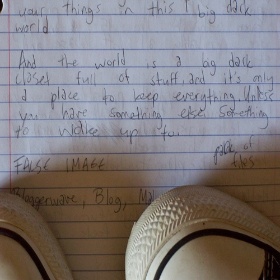 your things in this big dark
world
And the world is a big dark
closet full of stuff, and it's only
a place to keep everything. Unless
you have something else. Something
to wake up for.
FALSE IMAGE
pack of
Bloggerware, Blog,